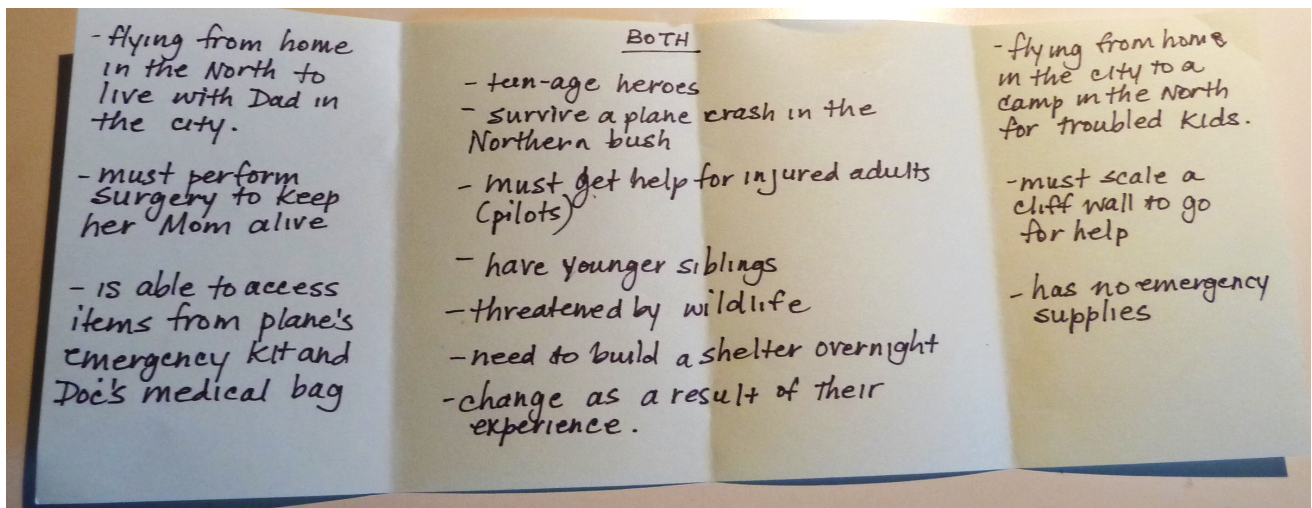 - flying from home
in the North to
live with Dad in
the city.
- must perform
surgery to keep
her Mom alive
- is able to access
items from plane's
emergency kit and
Doc's medical bag
BOTH
- teen-age heroes
- survive a plane crash in the
Northern bush
- must get help for injured adults
(pilots)
- have younger siblings
- threatened by wildlife
- need to build a shelter overnight
- change as a result of their
experience.
- flying from home
in the city to a
camp in the North
for troubled kids.
- must scale a
cliff wall to go
for help
- has no emergency
supplies